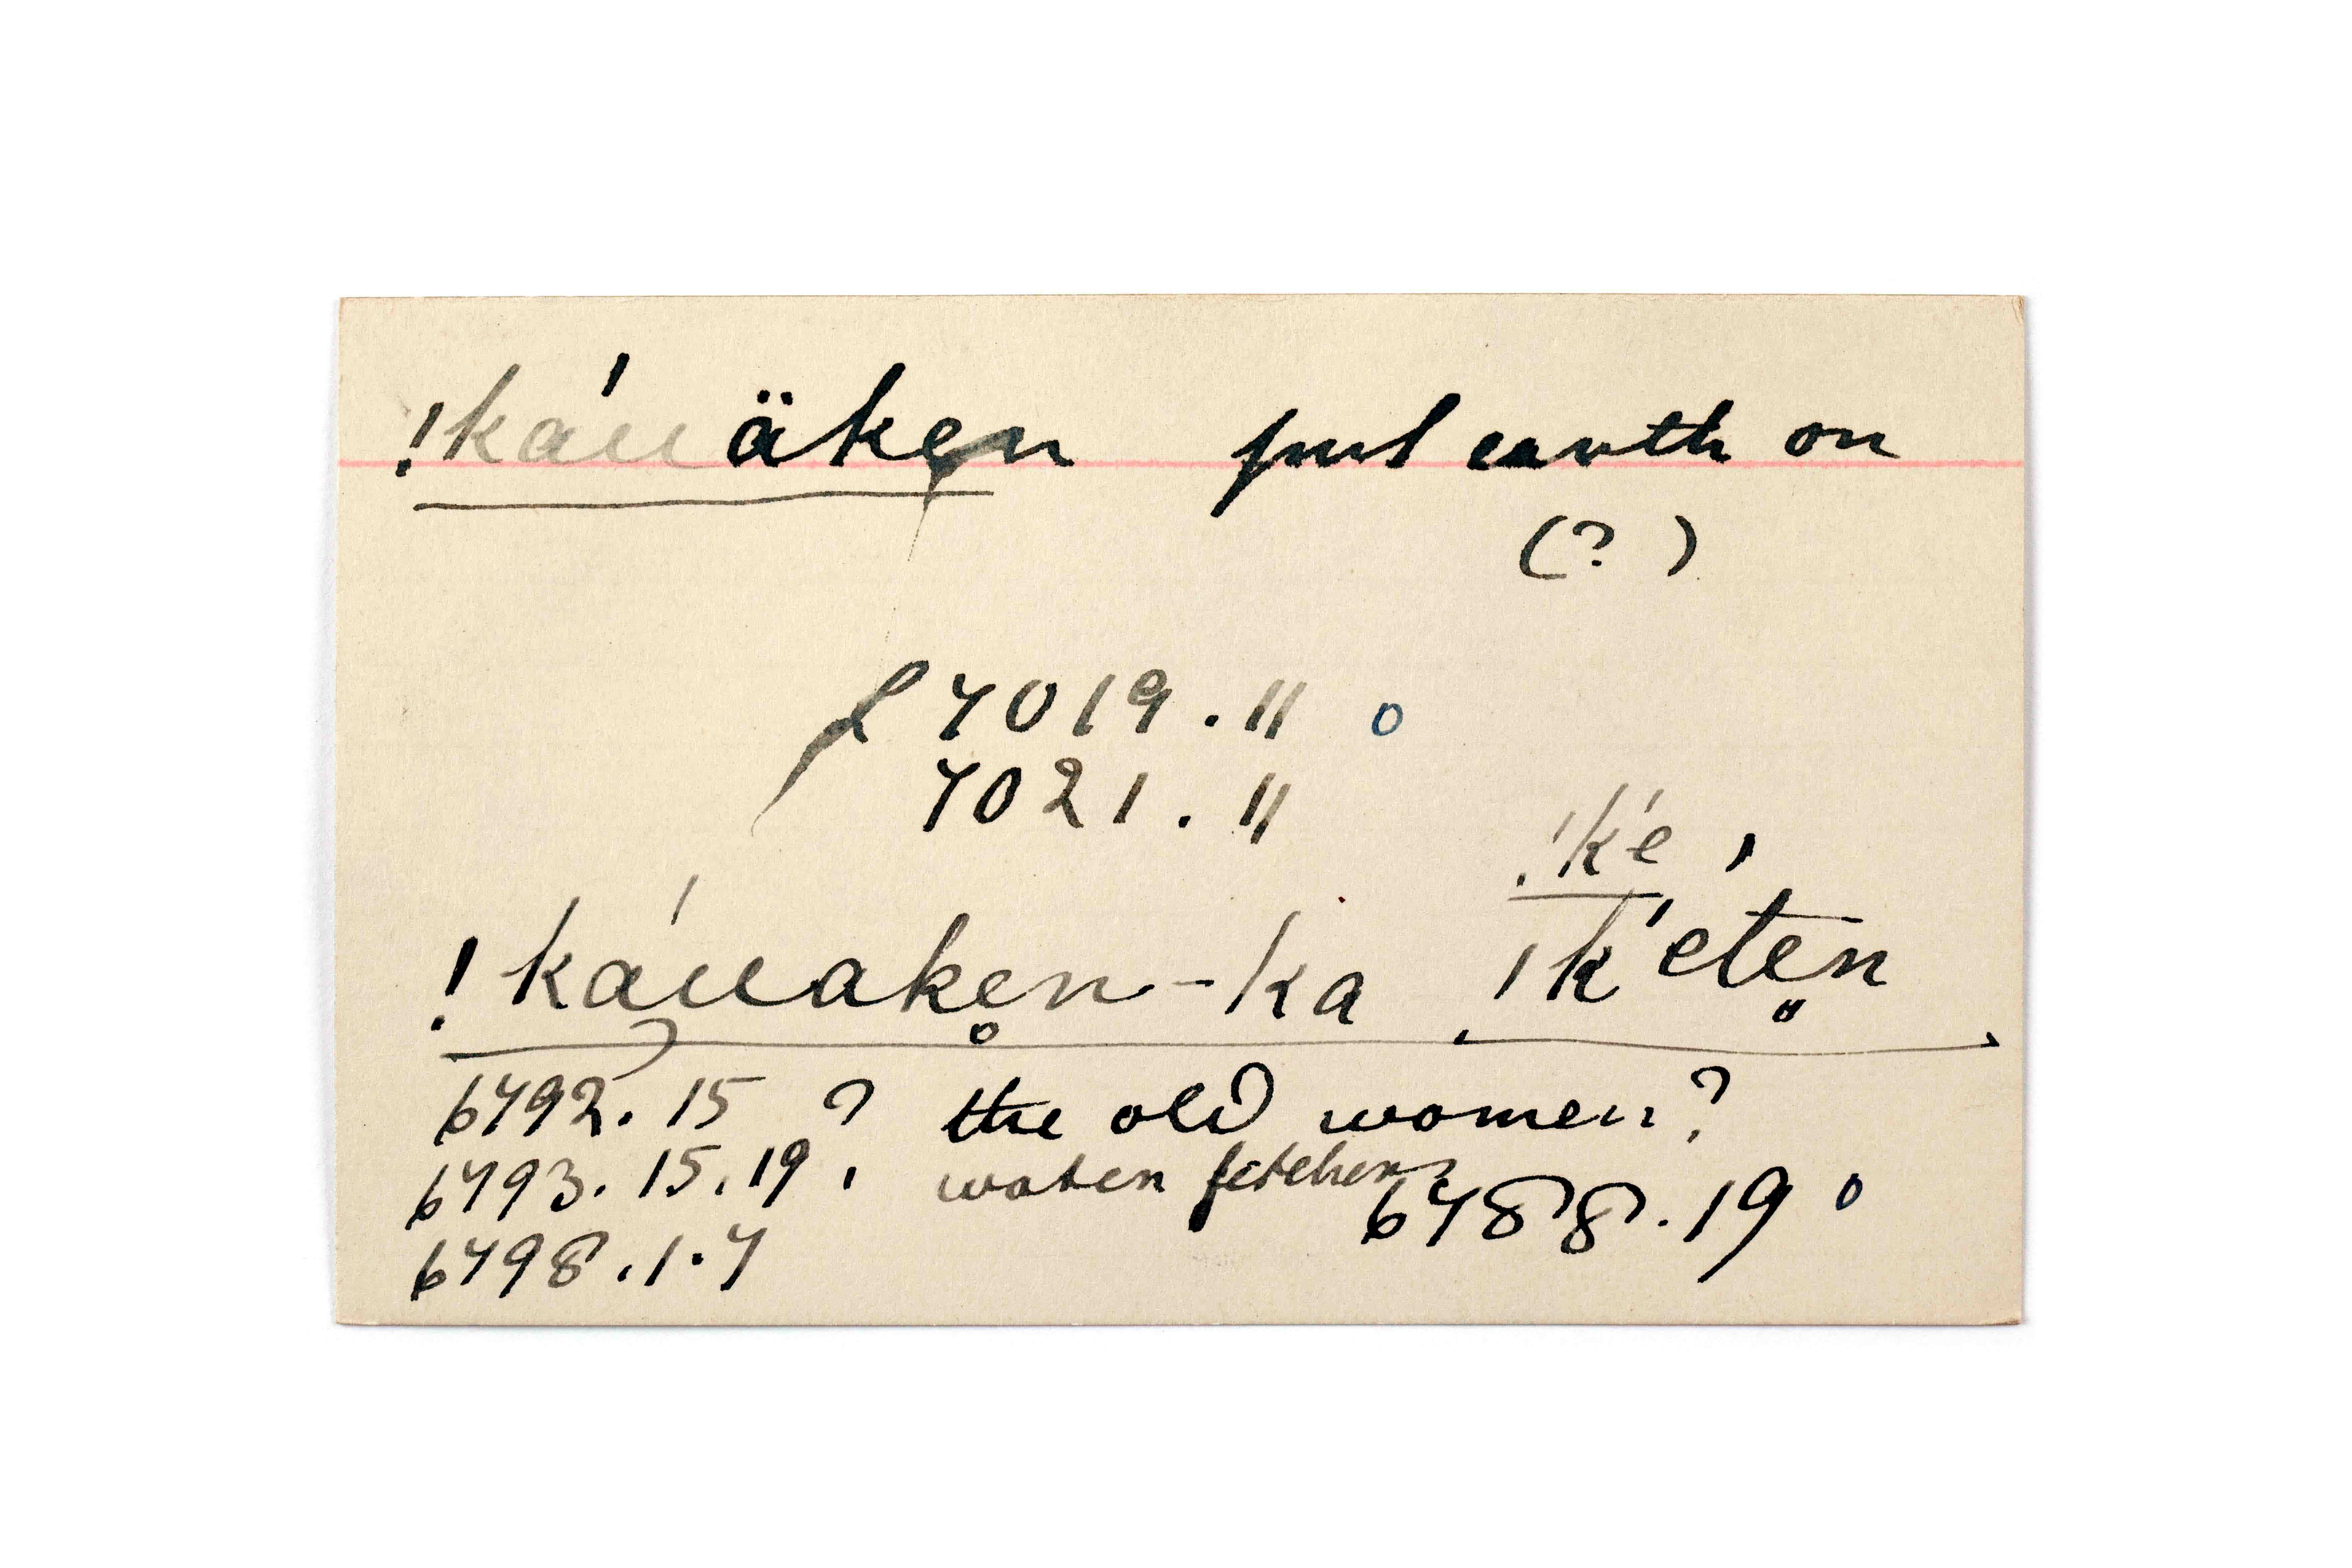 !káuäken put earth on
(?)
L 7019.11 o
7021.11
!k'e
!káuaken-ka !k'éten
6792.15 ? the old women?
6793.15.19. water fetchers
6788.19 o
6798.1.7